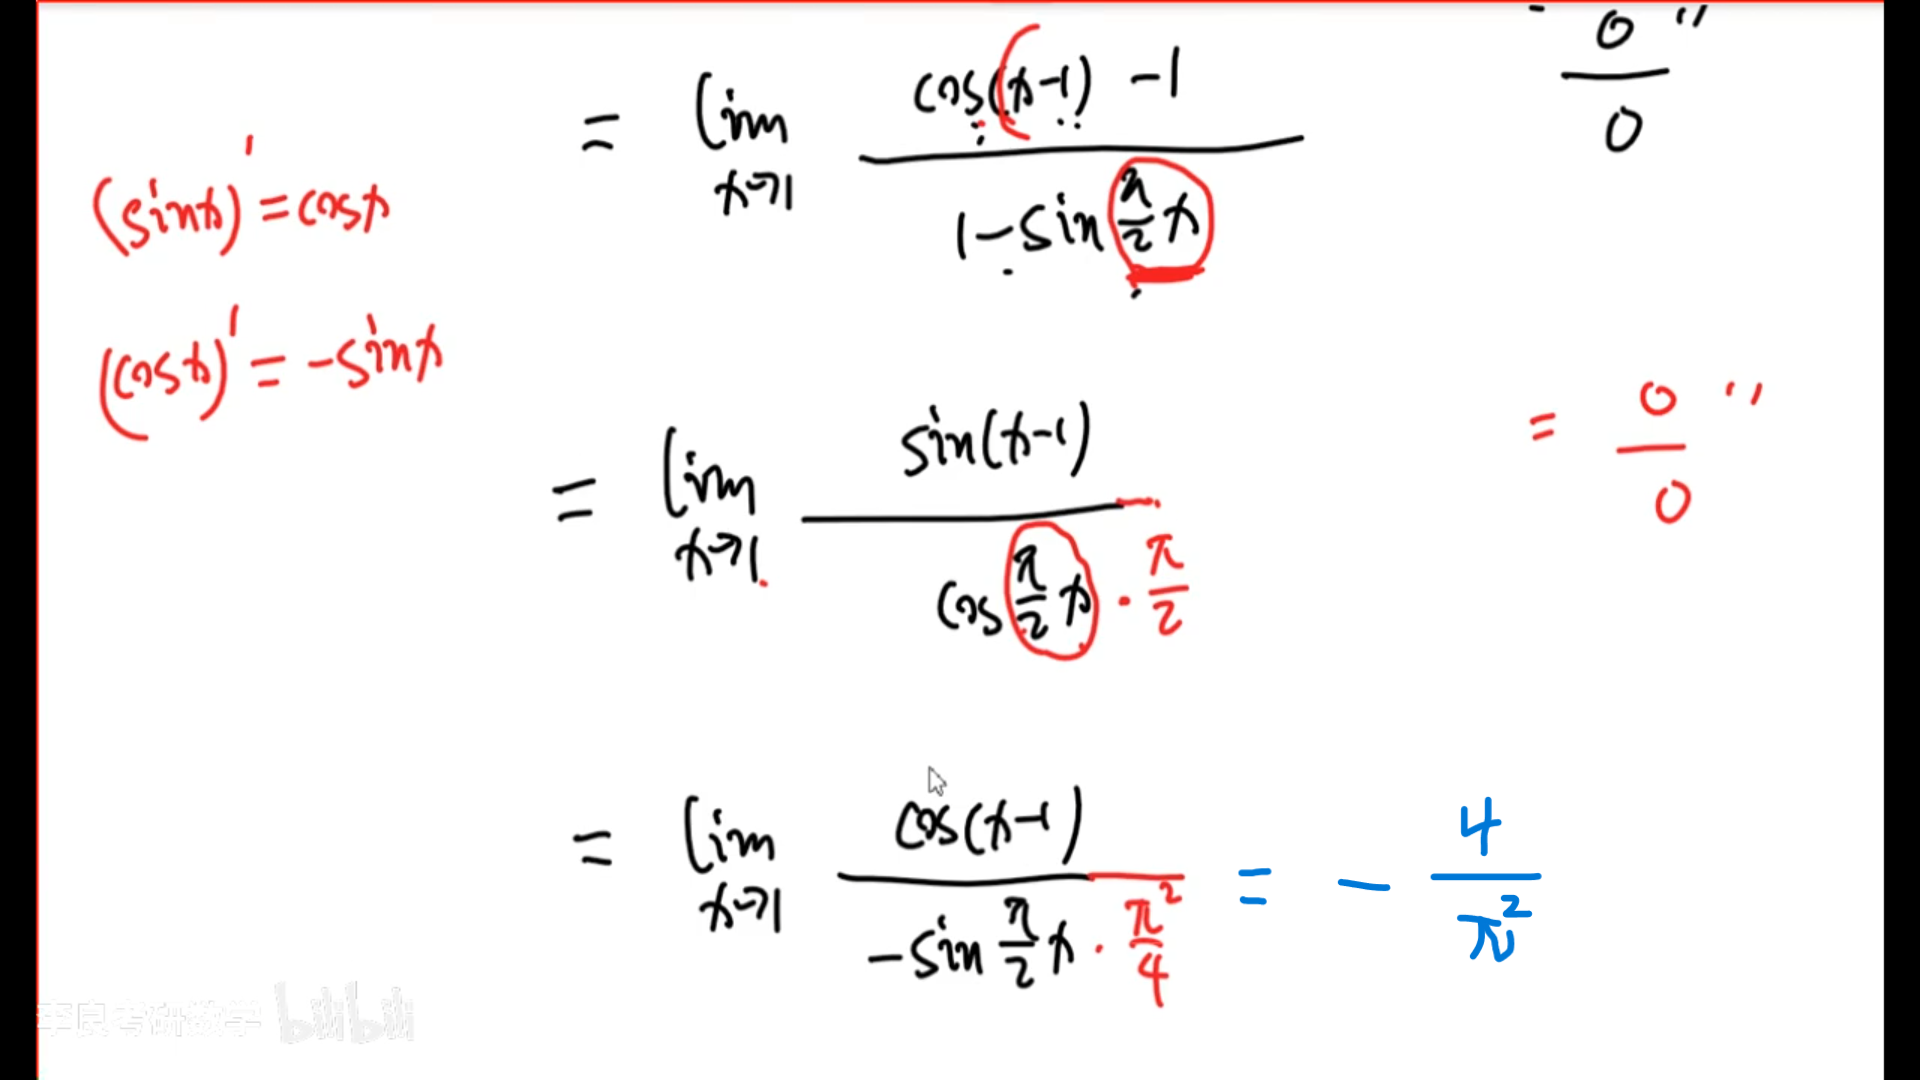 = lim x→1 (cos(x-1) -1)/(1-sin π/2 x)
0/0 "
(sinx)' = cosx
(cosx)' = -sinx
= lim x→1 sin(x-1)/(cos π/2 x · π/2)
= 0/0 "
= lim x→1 cos(x-1)/(-sin π/2 x · π²/4) = - 4/π²
李良考研数学 bilibili